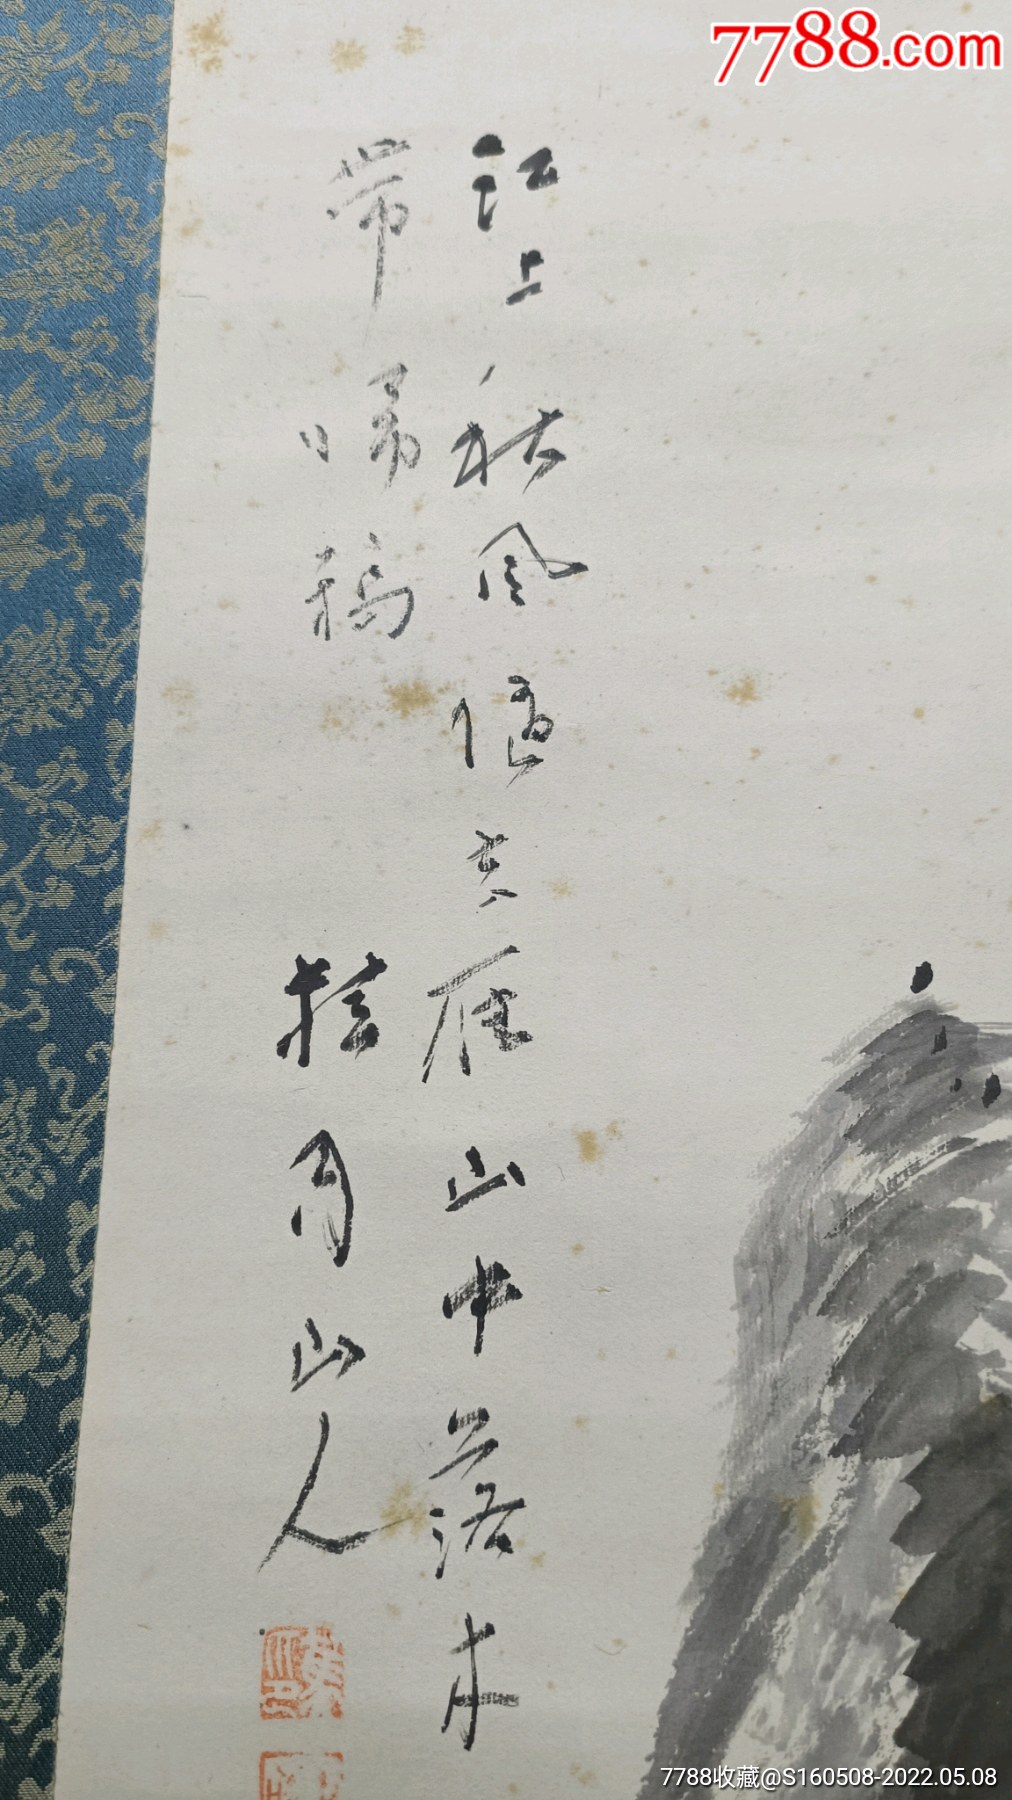 7788.com
江上秋风随去雁山中落木
带啼猿
桂月山人
7788收藏@S160508-2022.05.08